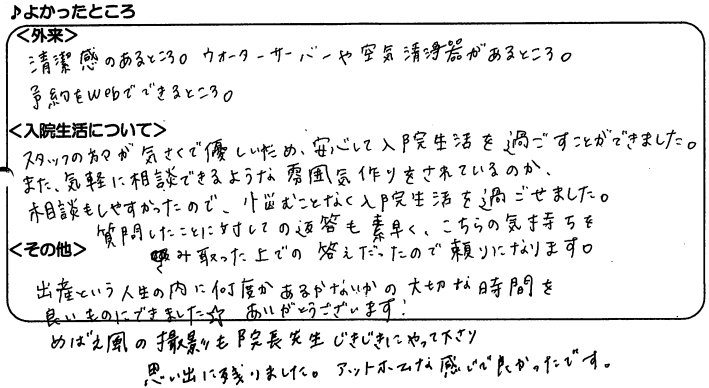 ♪よかったところ
<外来>
清潔感のあるところ。ウォーターサーバーや空気清浄器があるところ。
予約をWebでできるところ。
<入院生活について>
スタッフの方々が気さくで優しいため、安心して入院生活を過ごすことができました。
また、気軽に相談できるような雰囲気作りをされているのか、
相談もしやすかったので、悩むことなく入院生活を過ごせました。
質問したことに対しての返答も素早く、こちらの気持ちを
<その他>
み取った上での答えだったので頼りになります。
出産という人生の内に何度かあるかないかの大切な時間を
良いものにできました☆ ありがとうございます!
めばえ風の撮影も院長先生じきじきにやって下さり
思い出に残りました。アットホームな感じで良かったです。